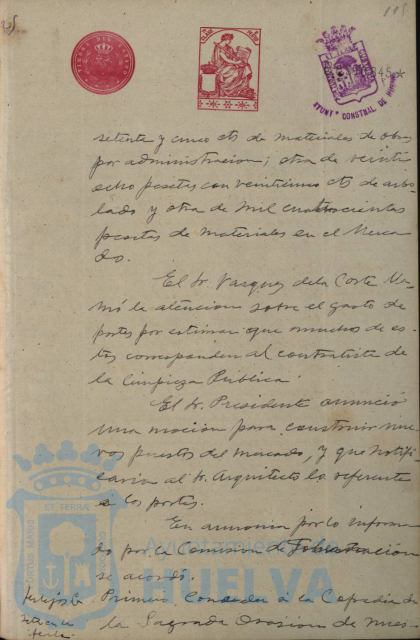 115
setenta y cinco cts de materiales de obras
por administracion; otra de veinti
ocho pesetas con veinticinco cts de arbo-
lado y otra de mil cuatrocientas
pesetas de materiales en el Merca
do.
El Sr. Vazquez de la Corte lla-
mó la atencion sobre el gasto de
portes por estimar que muchos de es-
tos corresponden al contratista de
la limpieza Publica
El Sr. Presidente anunció
una mocion para construir nue
vos puestos del mercado, y que notifi
caria al Sr. Arquitecto lo referente
a los portes.
En armonia por lo informa
do por la Comision de Gobernación
se acordó.
Primero Conceder á la Cofradia de
la Sagrada Oracion de Nues-
AYUNTº CONSTNAL DE
Ayuntamiento de
HUELVA